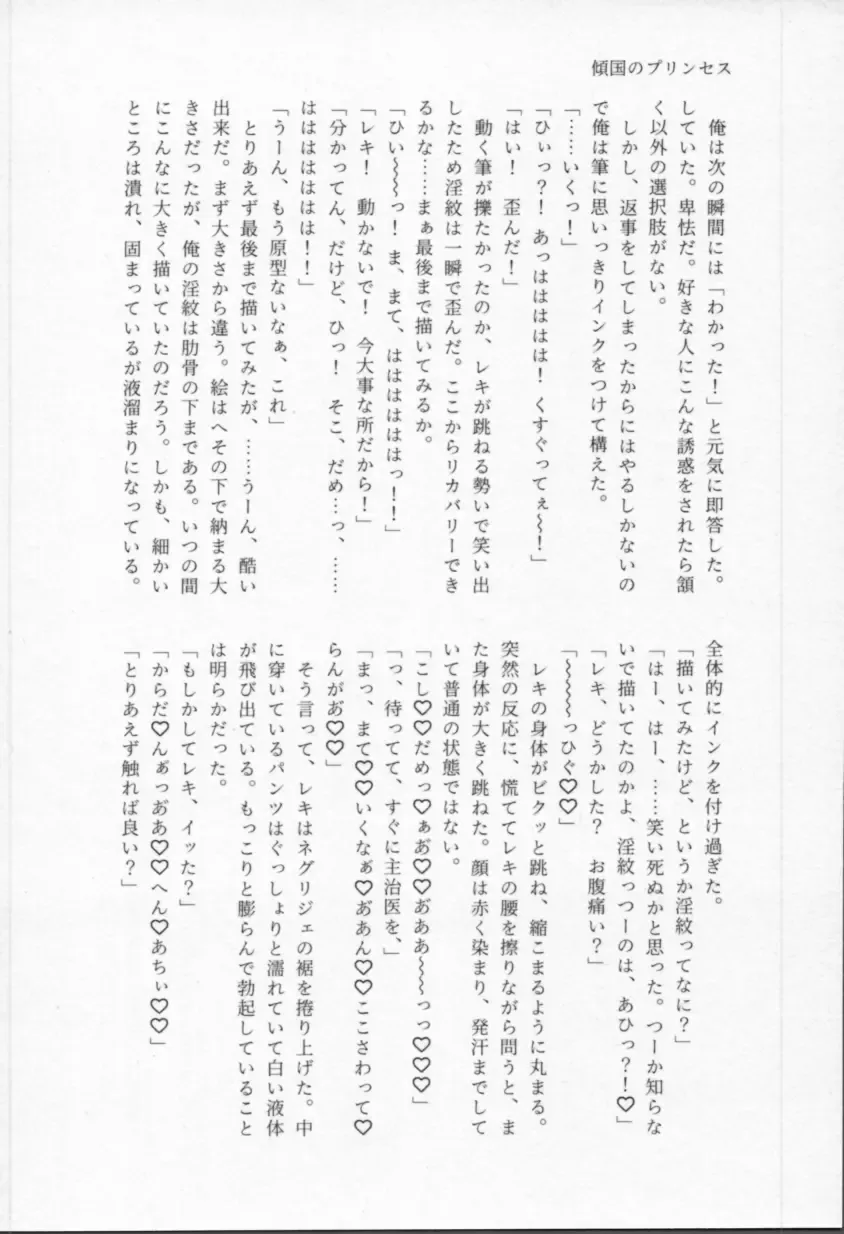 傾国のプリンセス
　俺は次の瞬間には「わかった！」と元気に即答した。
していた。卑怯だ。好きな人にこんな誘惑をされたら頷
く以外の選択肢がない。
　しかし、返事をしてしまったからにはやるしかないの
で俺は筆に思いっきりインクをつけて構えた。
「……いくっ！」
「ひぃっ？！　あっはははは！くすぐってぇ〜！」
「はい！　歪んだ！」
　動く筆が擽たかったのか、レキが跳ねる勢いで笑い出
したため淫紋は一瞬で歪んだ。ここからリカバリーでき
るかな……まぁ最後まで描いてみるか。
「ひい〜〜〜っ！　ま、まて、ははははははっ！！」
「レキ！　動かないで！　今大事な所だから！」
「分かってん、だけど、ひっ！　そこ、だめ…っ、……
ははははははは！！」
「うーん、もう原型ないなぁ、これ」
　とりあえず最後まで描いてみたが、……うーん、酷い
出来だ。まず大きさから違う。絵はへその下で納まる大
きさだったが、俺の淫紋は肋骨の下まである。いつの間
にこんなに大きく描いていたのだろう。しかも、細かい
ところは潰れ、固まっているが液溜まりになっている。
全体的にインクを付け過ぎた。
「描いてみたけど、というか淫紋ってなに？」
「はー、はー、……笑い死ぬかと思った。つーか知らな
いで描いてたのかよ、淫紋っつーのは、あひっ？！♡」
「レキ、どうかした？　お腹痛い？」
「〜〜〜〜っひぐ♡♡」
　レキの身体がビクッと跳ね、縮こまるように丸まる。
突然の反応に、慌ててレキの腰を擦りながら問うと、ま
た身体が大きく跳ねた。顔は赤く染まり、発汗までして
いて普通の状態ではない。
「こし♡♡だめっ♡ぁあ゙♡♡あ゙ああ〜〜〜っっ♡♡♡」
「っ、待ってて、すぐに主治医を、」
「まっ、まて♡♡いくなぁ゙♡あ゙あん♡♡ここさわって♡
らんがあ゙♡♡」
　そう言って、レキはネグリジェの裾を捲り上げた。中
に穿いているパンツはぐっしょりと濡れていて白い液体
が飛び出ている。もっこりと膨らんで勃起していること
は明らかだった。
「もしかしてレキ、イッた？」
「からだ♡んぁっあ゙あ♡♡へん♡あちぃ♡♡」
「とりあえず触れば良い？」